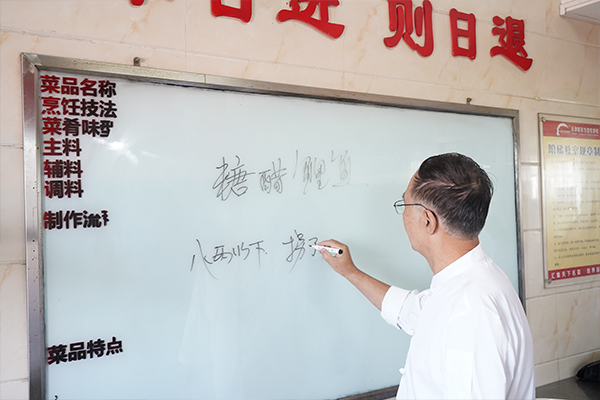 进 则日退
菜品名称
烹饪技法
菜肴味型
主料
辅料
调料
制作流程
菜品特点
糖醋“鲤鱼”
八两以下 拐子
阶梯教室规章制